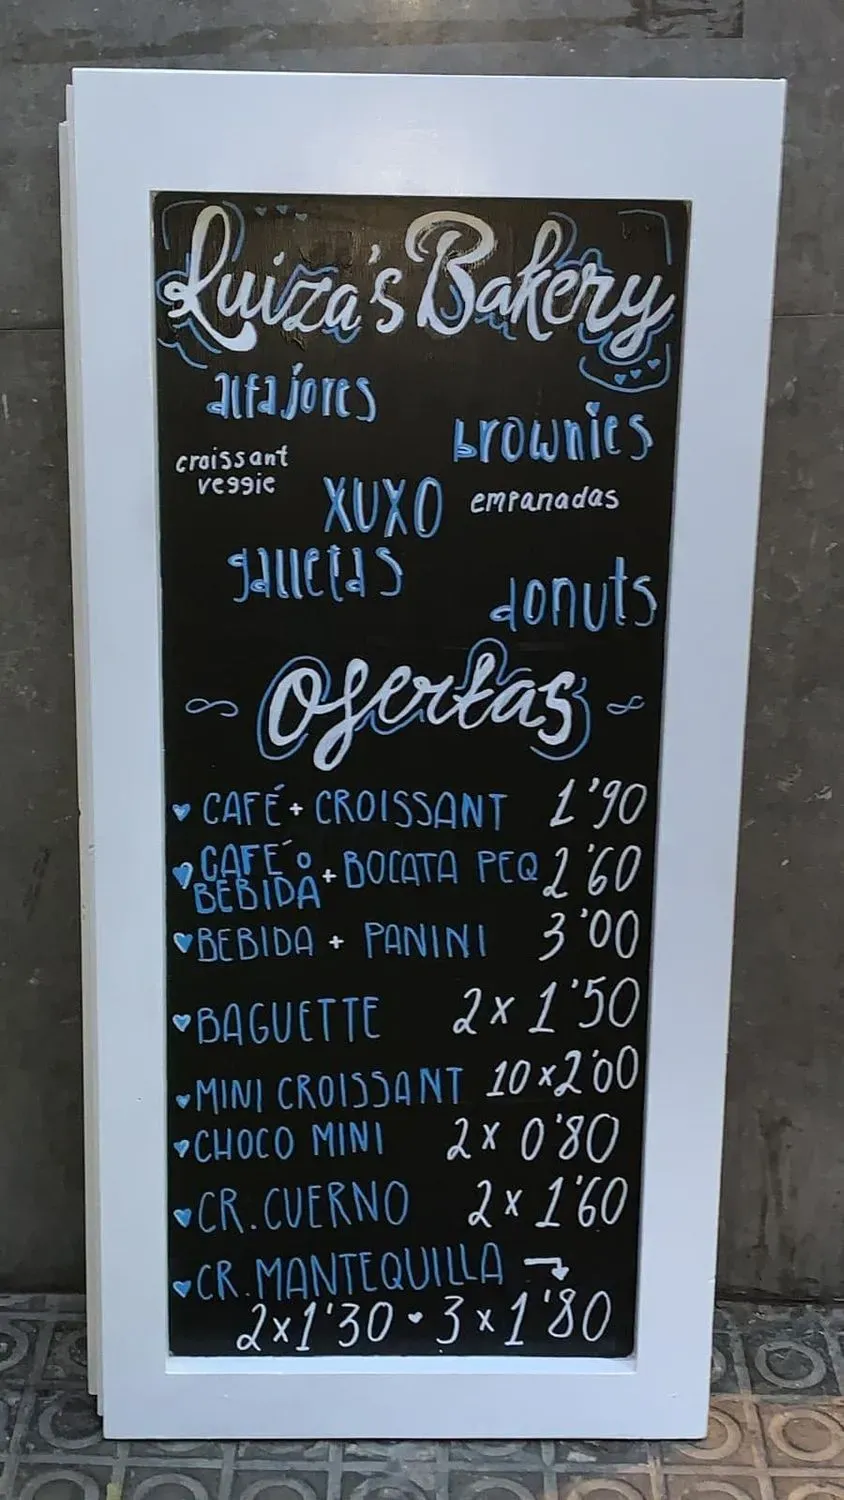 Luiza's Bakery
alfajores
brownies
croissant
veggie
XUXO
empanadas
galletas
donuts
Ofertas
CAFÉ + CROISSANT 1'90
CAFÉ o
BEBIDA + BOCATA PEQ 2'60
BEBIDA + PANINI 3'00
BAGUETTE 2x1'50
MINI CROISSANT 10x2'00
CHOCO MINI 2x0'80
CR. CUERNO 2x1'60
CR. MANTEQUILLA →
2x1'30 · 3x1'80